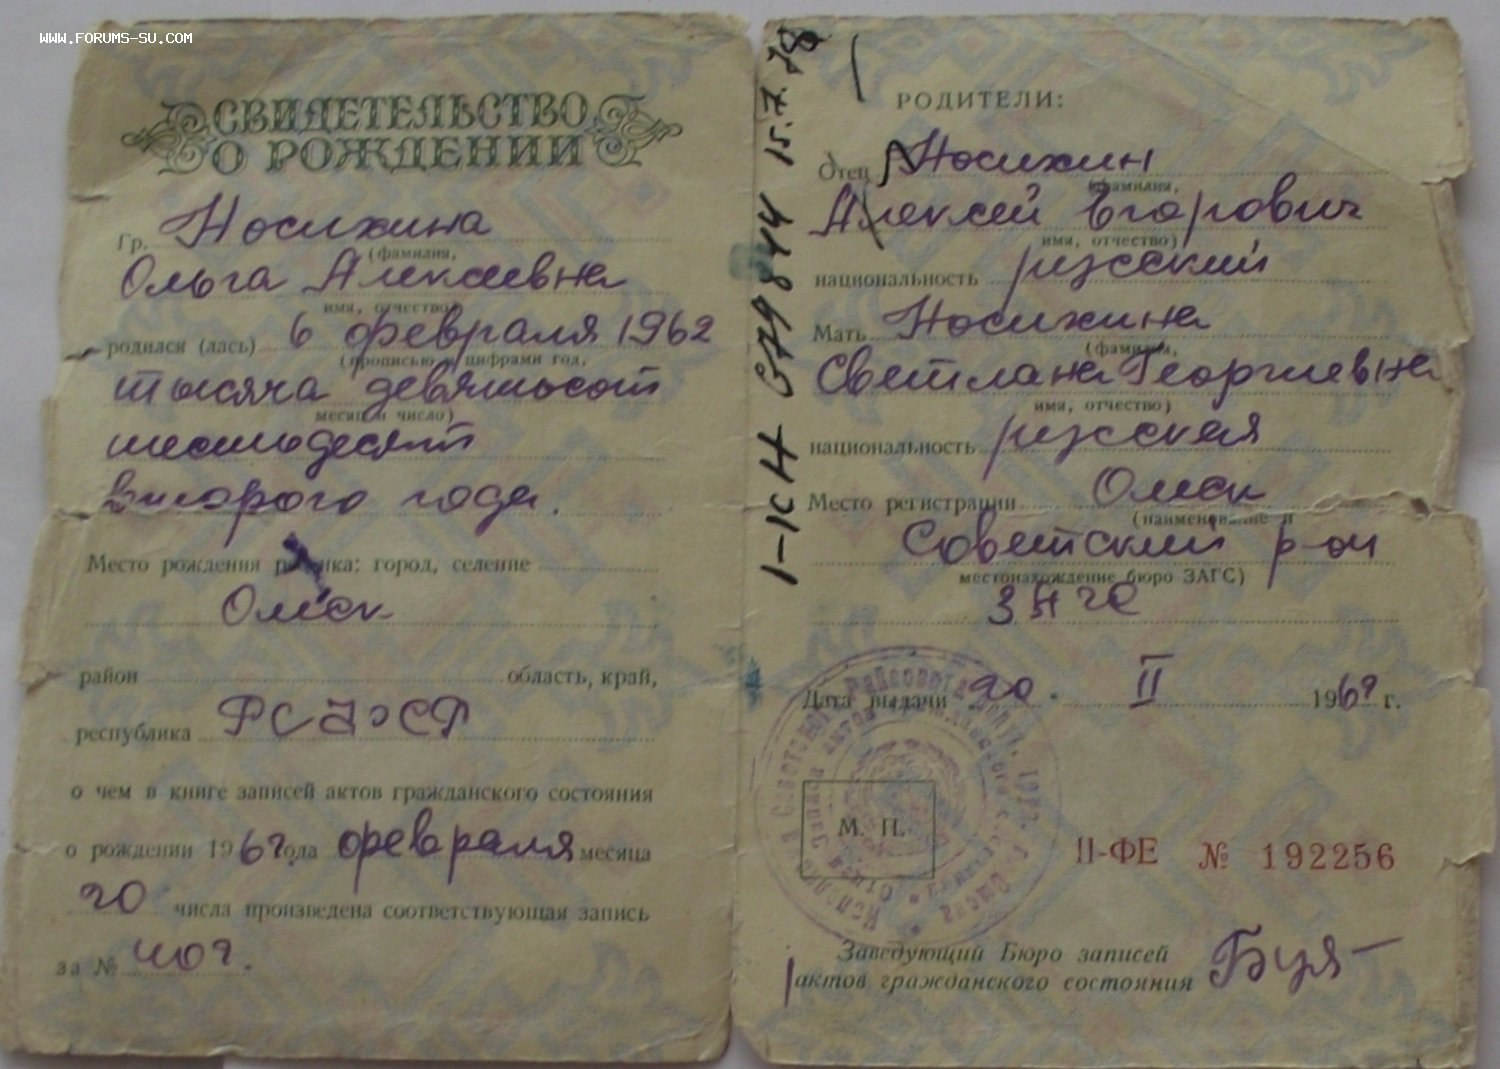 WWW.FORUMS-SU.COM
СВИДЕТЕЛЬСТВО
О РОЖДЕНИИ
Гр. Носихина
(фамилия,
Ольга Алексеевна
имя, отчество)
родился (лась) 6 февраля 1962
(прописью и цифрами год,
тысяча девятьсот
месяц и число)
шестьдесят
второго года.
Место рождения ребенка: город, селение
Омск
район область, край,
республика РСФСР
о чем в книге записей актов гражданского состояния
о рождении 1962 года февраля месяца
20 числа произведена соответствующая запись
за № 402.
1-КН 379844 15.7.78
РОДИТЕЛИ:
Отец Носихин
(фамилия,
Алексей Егорович
имя, отчество)
национальность русский
Мать Носихина
(фамилия,
Светлана Георгиевна
имя, отчество)
национальность русская
Место регистрации Омск
(наименование и
Советский р-он
местонахождение бюро ЗАГС)
ЗАГС
Дата выдачи 20. II 1962 г.
М. П.
II-ФЕ № 192256
Заведующий Бюро записей
актов гражданского состояния